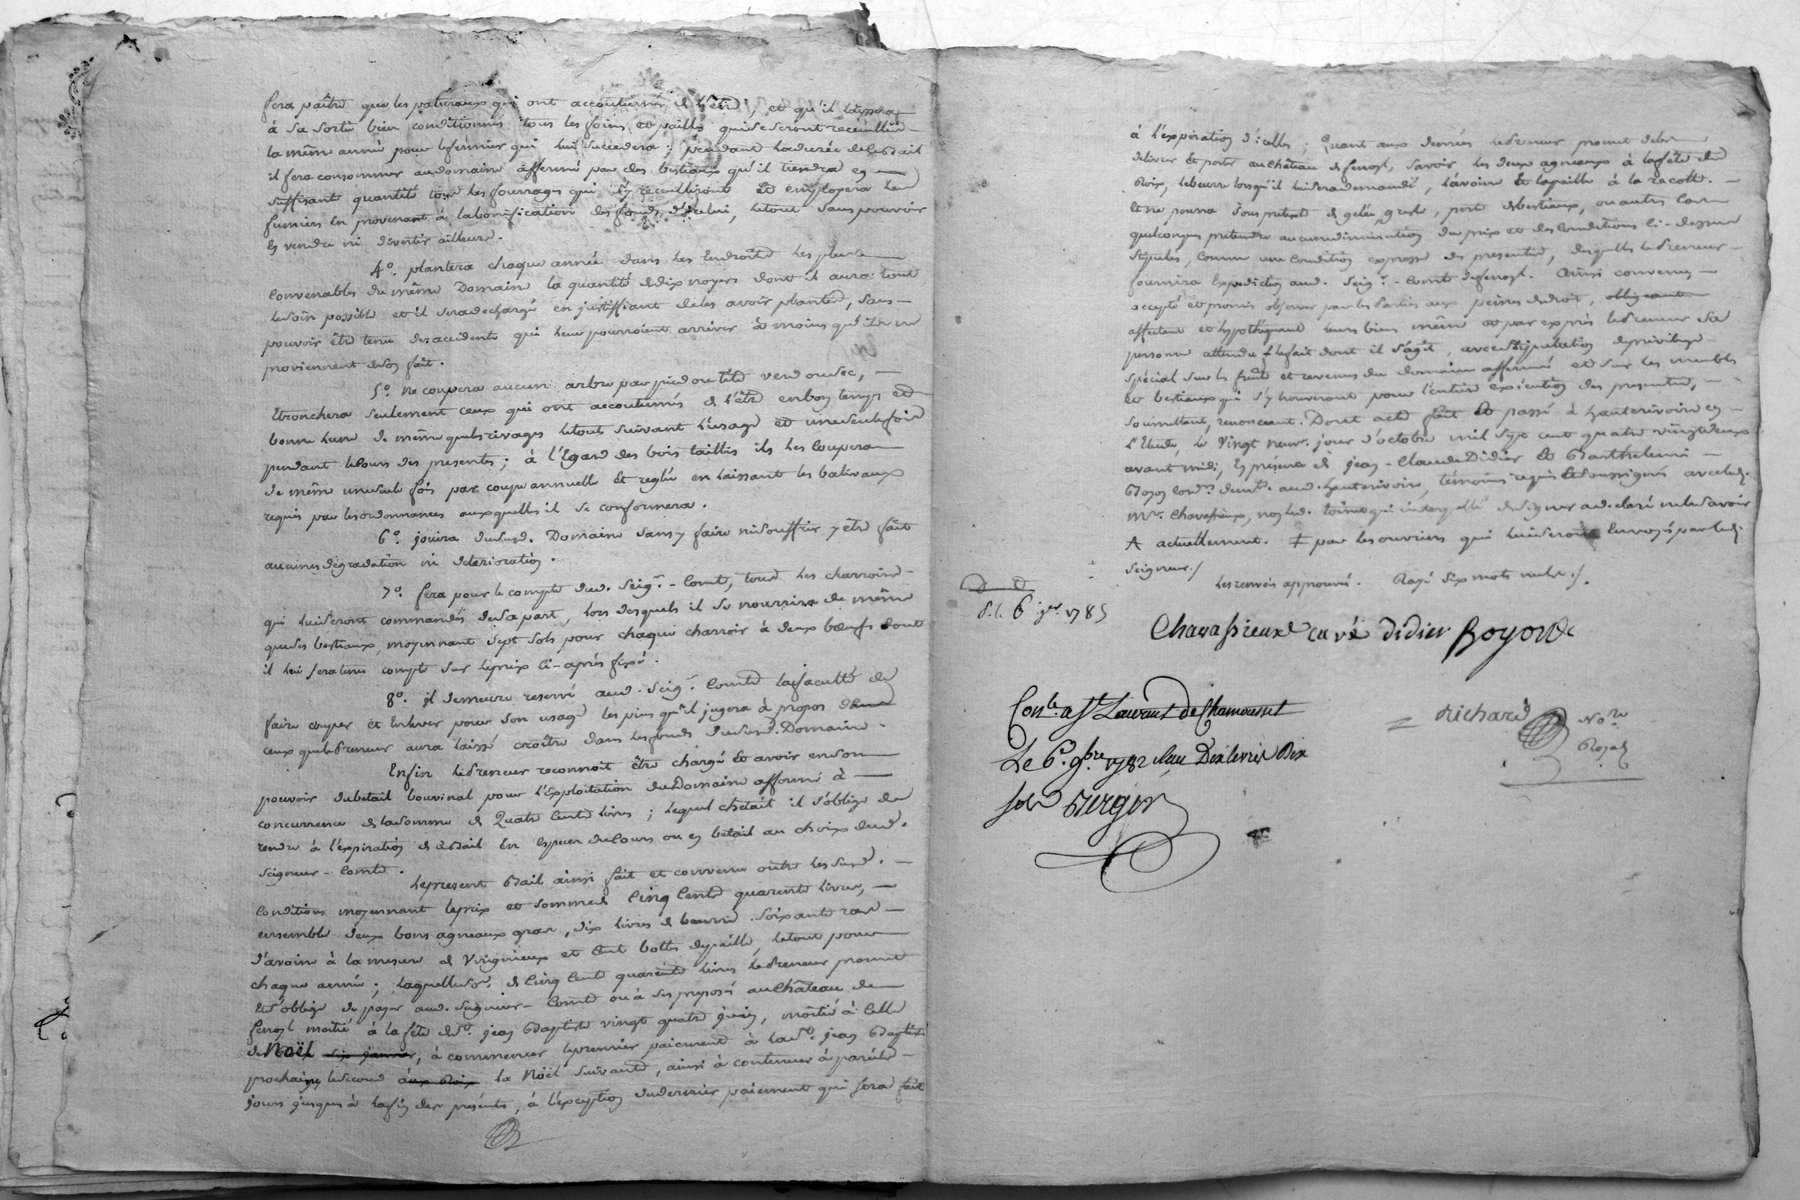 fera paître que les patureaux qui ont accoutumés de l'être, et qu'il laissera
à sa sortie bien conditionnés tous les foins et pailles qui se seront recueillis
la même année pour le fermier qui lui succedera; pendant la durée de ce bail
il fera consommer au domaine affermé par des bestiaux qu'il tiendra en
suffisante quantité tous les fourrages qui s'y recueilliront et employera les
fumiers en provenant à la bonification des fonds d'icelui, le tout sans pouvoir
les vendre ni divertir ailleurs.
4°. plantera chaque année dans les endroits les plus
convenables du même Domaine la quantité de dix noyers dont il aura tout
le soin possible et il sera dechargé en justiffiant de les avoir plantés, sans
pouvoir être tenu des accidents qui leur pourroient arriver à moins qu'ils ne
proviennent de son fait.
5°. Ne coupera aucun arbre par pied ou tête verd ou sec,
etronchera seulement ceux qui ont accoutumés de l'être en bon temps et
bonne lune de même que les rivages le tout suivant l'usage et une seule fois
pendant le cours des presentes; à l'égard des bois taillis ils les coupera
de même une seule fois par coupe annuelle et reglée en laissant les balivaux
requis par les ordonnances auxquelles il se conformera.
6°. jouira du susd. Domaine sans y faire ni souffrir y être fait
aucunes dégradation ni deterioration.
7°. fera pour le compte dud. Seigr. Comte, tous les charrois
qui lui seront commandés de sa part, lors desquels il se nourrira de même
que ses bestiaux, moyennant sept sols pour chaque charroir à deux bœufs dont
il lui sera tenu compte sur le prix ci-après fixé.
8°. il demeure reservé aud. Seigr. Comte la faculté de
faire couper et enlever pour son usage les pins qu'il jugera à propos dans
ceux que le Preneur aura laissé croître dans les fonds du susd. Domaine.
Enfin le Preneur reconnoit être chargé et avoir en son
pouvoir du betail bouvinal pour l'exploitation du Domaine affermé à
concurrence de la somme de Quatre cents livres; lequel chetail il s'oblige de
rendre à l'expiration de ce Bail en especes de cours ou en betail au choix dud.
Seigneur-Comte.
Le present Bail ainsi fait et convenu outre les susd.
conditions moyennant le prix et somme de cinq cents quarante livres,
ensemble deux bons agneaux gras, dix livres de beurre, soixante ras
d'avoine à la mesure de Virigneux et cent bottes de paille, le tout pour
chaque année; laquelle so. de cinq cent quarante livres le Preneur promet
et s'oblige de payer aud. Seigneur-Comte ou à ses preposés au Château de
fenoyl moitié à la fête de St. jean Baptiste vingt quatre juin, moitié à celle
de Noël six janvier, à commencer le premier paiement à lad. St. jean Baptiste
prochaine, le second aux Rois la Noël suivante, ainsi à continuer à pareils
jours jusques à la fin des presentes, à l'exception du dernier paiement qui sera fait
à l'expiration d'icelles; Quant aux denrées le Preneur promet de les
delivrer et porter au Château de fenoyl, savoir les deux agneaux à la fête des
Rois, le beurre lorsqu'il lui sera demandé, l'avoine et la paille à la recolte.
Et ne pourra sous pretexte de gelée, grele, perte de bestiaux, ou autres cas
quelconques pretendre aucune diminution du prix et des conditions ci-dessus
stipulés, comme une condition expresse des presentes, desquelles le Preneur
fournira Expedition aud. Seigr.-Comte de fenoyl. Ainsi convenu
accepté et promis observer par les Parties aux peines de droit, obligeant
affectant et hypothequant leurs biens même et par exprès le Preneur sa
personne attendu ‡ le fait dont il s'agit, avec stipulation de privilege
spécial sur les fruits et revenus du domaine affermé et sur les meubles
et bestiaux qui s'y trouveront pour l'entiere exécution des presentes,
soumettant, renonceant. Dont acte fait et passé à Hauterivoire en
l'Etude, le vingt neuv. jour d'octobre mil sept cent quatre vingt deux
avant midi, En présence de jean-Claude Didier et Barthelemi
Boyon cord. demt. aud. Hauterivoire, témoins requis et soussignés avec led.
Mr. Chavassieux, non led. Coimet qui interpellé de signer a declaré ne le savoir
A actuellement. ‡ par les ouvriers qui lui seront envoyés par led.
Seigneur./
Les renvois approuvé. Rayé six mots nuls./.
d. le 6 9re 1785
Chavassieux curé didier Boyon
Richard Nore
Royal
Conle. a St. Laurent de Chamousset
Le 6e. 9bre 1782 Reçu Dix livres Dix
sols Bergier